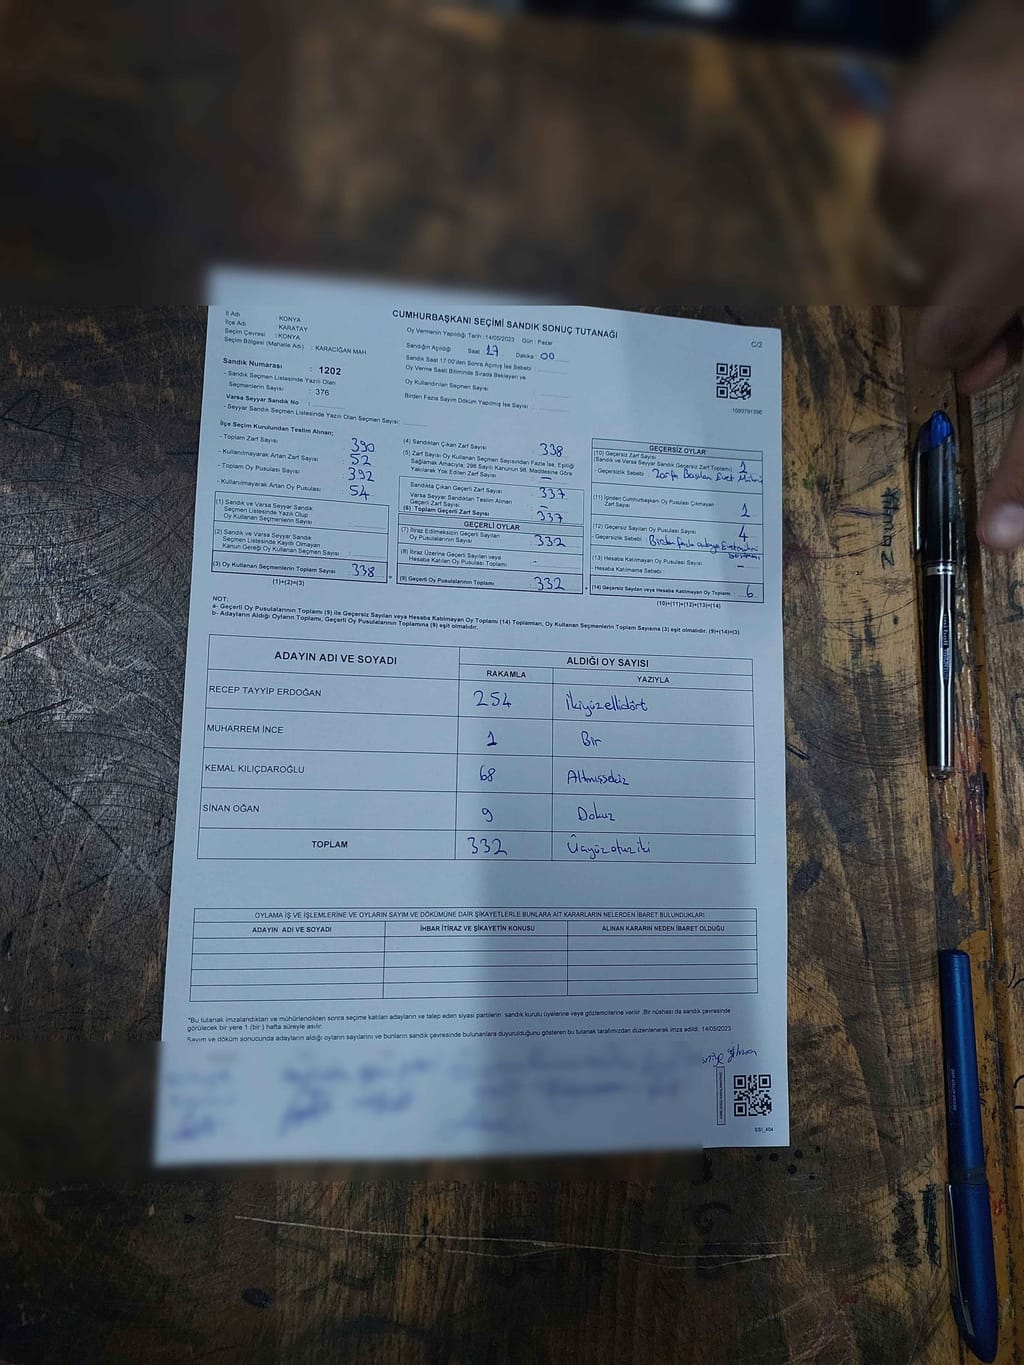 CUMHURBAŞKANI SEÇİMİ SANDIK SONUÇ TUTANAĞI
C/2
İl Adı : KONYA
İlçe Adı : KARATAY
Seçim Çevresi : KONYA
Seçim Bölgesi (Mahalle Adı) : KARACİĞAN MAH
Sandık Numarası : 1202
- Sandık Seçmen Listesinde Yazılı Olan
Seçmenlerin Sayısı : 376
Varsa Seyyar Sandık No :
- Seyyar Sandık Seçmen Listesinde Yazılı Olan Seçmen Sayısı:
Oy Vermenin Yapıldığı Tarih : 14/05/2023 Gün : Pazar
Sandığın Açıldığı Saat 17 Dakika 00
Sandık Saat 17:00'den Sonra Açılmış İse Sebebi :
Oy Verme Saati Bitiminde Sırada Bekleyen ve
Oy Kullandırılan Seçmen Sayısı :
Birden Fazla Sayım Döküm Yapılmış İse Sayısı :
1093791396
İlçe Seçim Kurulundan Teslim Alınan;
- Toplam Zarf Sayısı : 390
- Kullanılmayarak Artan Zarf Sayısı : 52
- Toplam Oy Pusulası Sayısı : 392
- Kullanılmayarak Artan Oy Pusulası : 54
(1) Sandık ve Varsa Seyyar Sandık
Seçmen Listesinde Yazılı Olup
Oy Kullanan Seçmenlerin Sayısı :
(2) Sandık ve Varsa Seyyar Sandık
Seçmen Listesinde Kayıtlı Olmayan
Kanun Gereği Oy Kullanan Seçmen Sayısı :
(3) Oy Kullanan Seçmenlerin Toplam Sayısı : 338
(1)+(2)=(3)
(4) Sandıktan Çıkan Zarf Sayısı : 338
(5) Zarf Sayısı Oy Kullanan Seçmen Sayısından Fazla İse, Eşitliği
Sağlamak Amacıyla, 298 Sayılı Kanunun 98. Maddesine Göre
Yakılarak Yok Edilen Zarf Sayısı : –
Sandıkta Çıkan Geçerli Zarf Sayısı : 337
Varsa Seyyar Sandıktan Teslim Alınan
Geçerli Zarf Sayısı : –
(6) Toplam Geçerli Zarf Sayısı : 337
GEÇERLİ OYLAR
(7) İtiraz Edilmeksizin Geçerli Sayılan
Oy Pusulasının Sayısı : 332
(8) İtiraz Üzerine Geçerli Sayılan veya
Hesaba Katılan Oy Pusulası Toplamı : -
(9) Geçerli Oy Pusulalarının Toplamı : 332
GEÇERSİZ OYLAR
(10) Geçersiz Zarf Sayısı
(Sandık ve Varsa Seyyar Sandık Geçersiz Zarf Toplamı) : 1
- Geçersizlik Sebebi : Zarfa Basılan Evet Mührü
(11) İçinden Cumhurbaşkanı Oy Pusulası Çıkmayan
Zarf Sayısı : 1
(12) Geçersiz Sayılan Oy Pusulası Sayısı : 4
- Geçersizlik Sebebi : Birden fazla adaya
(13) Hesaba Katılmayan Oy Pusulası Sayısı : –
- Hesaba Katılmama Sebebi :
(14) Geçersiz Sayılan veya Hesaba Katılmayan Oy Toplamı : 6
(10)+(11)+(12)+(13)=(14)
NOT:
a- Geçerli Oy Pusulalarının Toplamı (9) ile Geçersiz Sayılan veya Hesaba Katılmayan Oy Toplamı (14) Toplamları, Oy Kullanan Seçmenlerin Toplam Sayısına (3) eşit olmalıdır. (9)+(14)=(3)
b- Adayların Aldığı Oyların Toplamı, Geçerli Oy Pusulalarının Toplamına (9) eşit olmalıdır.
ADAYIN ADI VE SOYADI ALDIĞI OY SAYISI
RAKAMLA YAZIYLA
RECEP TAYYİP ERDOĞAN 254 İkiyüzellidört
MUHARREM İNCE 1 Bir
KEMAL KILIÇDAROĞLU 68 Altmışsekiz
SİNAN OĞAN 9 Dokuz
TOPLAM 332 Üçyüzotuziki
OYLAMA İŞ VE İŞLEMLERİNE VE OYLARIN SAYIM VE DÖKÜMÜNE DAİR ŞİKAYETLERLE BUNLARA AİT KARARLARIN NELERDEN İBARET BULUNDUKLARI
ADAYIN ADI VE SOYADI İHBAR İTİRAZ VE ŞİKAYETİN KONUSU ALINAN KARARIN NEDEN İBARET OLDUĞU
*Bu tutanak imzalandıktan ve mühürlendikten sonra seçime katılan adayların ve talep eden siyasi partilerin sandık kurulu üyelerine veya gözlemcilerine verilir. Bir nüshası da sandık çevresinde
görülecek bir yere 1 (bir ) hafta süreyle asılır.
Sayım ve döküm sonucunda adayların aldığı oyların sayılarını ve bunların sandık çevresinde bulunanlara duyurulduğunu gösteren bu tutanak tarafımızdan düzenlenerek imza edildi. 14/05/2023
SSI_404